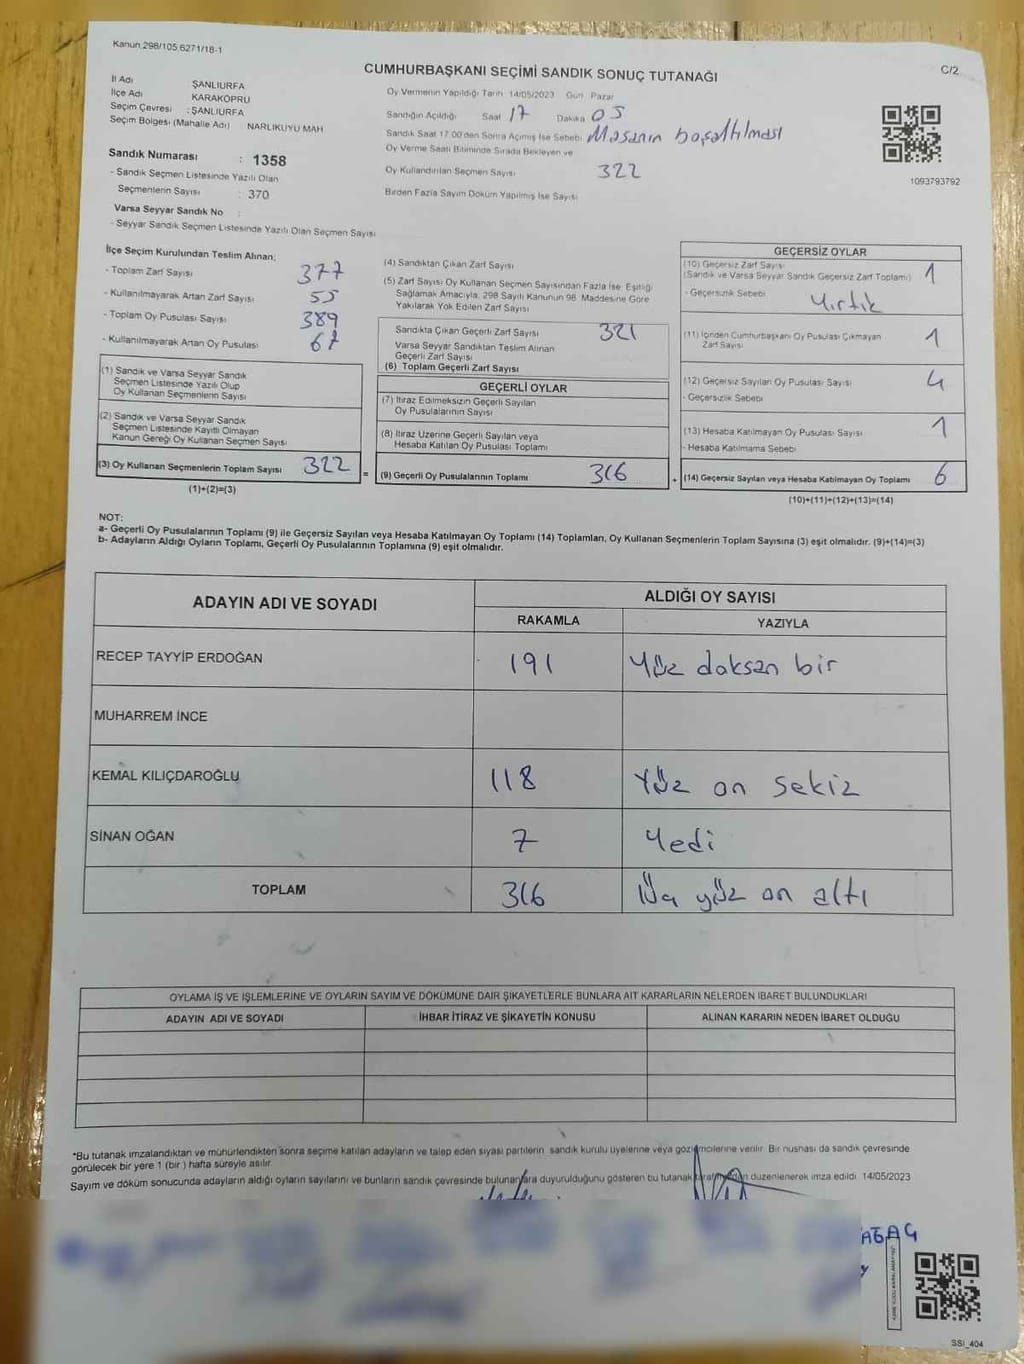 Kanun,298/105,6271/18-1
C/2
CUMHURBAŞKANI SEÇİMİ SANDIK SONUÇ TUTANAĞI
İl Adı ŞANLIURFA
İlçe Adı KARAKÖPRÜ
Seçim Çevresi : ŞANLIURFA
Seçim Bölgesi (Mahalle Adı) NARLIKUYU MAH
Sandık Numarası : 1358
- Sandık Seçmen Listesinde Yazılı Olan
Seçmenlerin Sayısı : 370
Varsa Seyyar Sandık No :
- Seyyar Sandık Seçmen Listesinde Yazılı Olan Seçmen Sayısı
Oy Vermenin Yapıldığı Tarih 14/05/2023 Gün Pazar
Sandığın Açıldığı Saat 17 Dakika 05
Sandık Saat 17.00'den Sonra Açılmış İse Sebebi Masanın boşaltılması
Oy Verme Saati Bitiminde Sırada Bekleyen ve
Oy Kullandırılan Seçmen Sayısı 322
Birden Fazla Sayım Döküm Yapılmış İse Sayısı
1093793792
İlçe Seçim Kurulundan Teslim Alınan;
- Toplam Zarf Sayısı 377
- Kullanılmayarak Artan Zarf Sayısı 55
- Toplam Oy Pusulası Sayısı 389
- Kullanılmayarak Artan Oy Pusulası 67
(1) Sandık ve Varsa Seyyar Sandık
Seçmen Listesinde Yazılı Olup
Oy Kullanan Seçmenlerin Sayısı
(2) Sandık ve Varsa Seyyar Sandık
Seçmen Listesinde Kayıtlı Olmayan
Kanun Gereği Oy Kullanan Seçmen Sayısı
(3) Oy Kullanan Seçmenlerin Toplam Sayısı 322 =
(1)+(2)=(3)
(4) Sandıktan Çıkan Zarf Sayısı
(5) Zarf Sayısı Oy Kullanan Seçmen Sayısından Fazla İse; Eşitliği
Sağlamak Amacıyla, 298 Sayılı Kanunun 98. Maddesine Göre
Yakılarak Yok Edilen Zarf Sayısı
Sandıkta Çıkan Geçerli Zarf Sayısı 321
Varsa Seyyar Sandıktan Teslim Alınan
Geçerli Zarf Sayısı
(6) Toplam Geçerli Zarf Sayısı
GEÇERLİ OYLAR
(7) İtiraz Edilmeksizin Geçerli Sayılan
Oy Pusulalarının Sayısı
(8) İtiraz Üzerine Geçerli Sayılan veya
Hesaba Katılan Oy Pusulaları Toplamı
(9) Geçerli Oy Pusulalarının Toplamı 316 +
GEÇERSİZ OYLAR
(10) Geçersiz Zarf Sayısı
(Sandık ve Varsa Seyyar Sandık Geçersiz Zarf Toplamı) 1
- Geçersizlik Sebebi Yırtık
(11) İçinden Cumhurbaşkanı Oy Pusulası Çıkmayan
Zarf Sayısı 1
(12) Geçersiz Sayılan Oy Pusulası Sayısı 4
- Geçersizlik Sebebi
(13) Hesaba Katılmayan Oy Pusulası Sayısı 1
- Hesaba Katılmama Sebebi
(14) Geçersiz Sayılan veya Hesaba Katılmayan Oy Toplamı 6
(10)+(11)+(12)+(13)=(14)
NOT:
a- Geçerli Oy Pusulalarının Toplamı (9) ile Geçersiz Sayılan veya Hesaba Katılmayan Oy Toplamı (14) Toplamları, Oy Kullanan Seçmenlerin Toplam Sayısına (3) eşit olmalıdır. (9)+(14)=(3)
b- Adayların Aldığı Oyların Toplamı, Geçerli Oy Pusulalarının Toplamına (9) eşit olmalıdır.
ADAYIN ADI VE SOYADI
ALDIĞI OY SAYISI
RAKAMLA YAZIYLA
RECEP TAYYİP ERDOĞAN 191 Yüz doksan bir
MUHARREM İNCE
KEMAL KILIÇDAROĞLU 118 Yüz on sekiz
SİNAN OĞAN 7 Yedi
TOPLAM 316 Üç yüz on altı
OYLAMA İŞ VE İŞLEMLERİNE VE OYLARIN SAYIM VE DÖKÜMÜNE DAİR ŞİKAYETLERLE BUNLARA AİT KARARLARIN NELERDEN İBARET BULUNDUKLARI
ADAYIN ADI VE SOYADI İHBAR İTİRAZ VE ŞİKAYETİN KONUSU ALINAN KARARIN NEDEN İBARET OLDUĞU
*Bu tutanak imzalandıktan ve mühürlendikten sonra seçime katılan adayların ve talep eden siyasi partilerin sandık kurulu üyelerine veya gözlemcilerine verilir. Bir nüshası da sandık çevresinde
görülecek bir yere 1 (bir) hafta süreyle asılır.
Sayım ve döküm sonucunda adayların aldığı oyların sayılarını ve bunların sandık çevresinde bulunanlara duyurulduğunu gösteren bu tutanak tarafımızdan düzenlenerek imza edildi. 14/05/2023
AĞAÇ
SSI_404